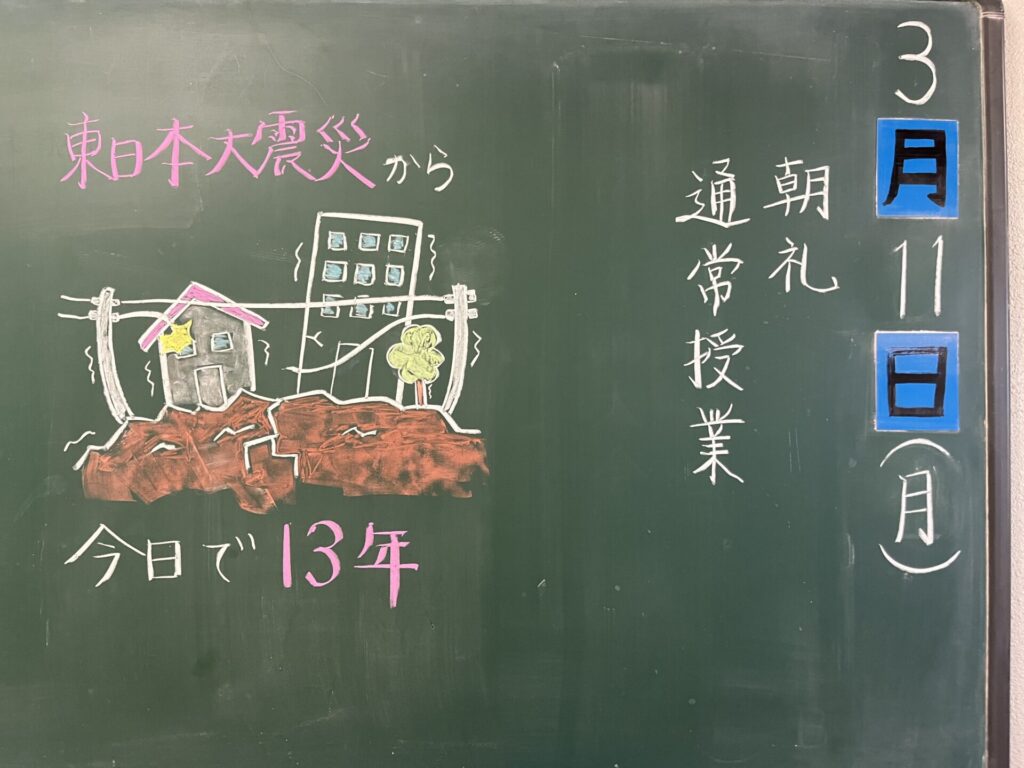 3月11日(月)
朝礼
通常授業
東日本大震災から
今日で13年